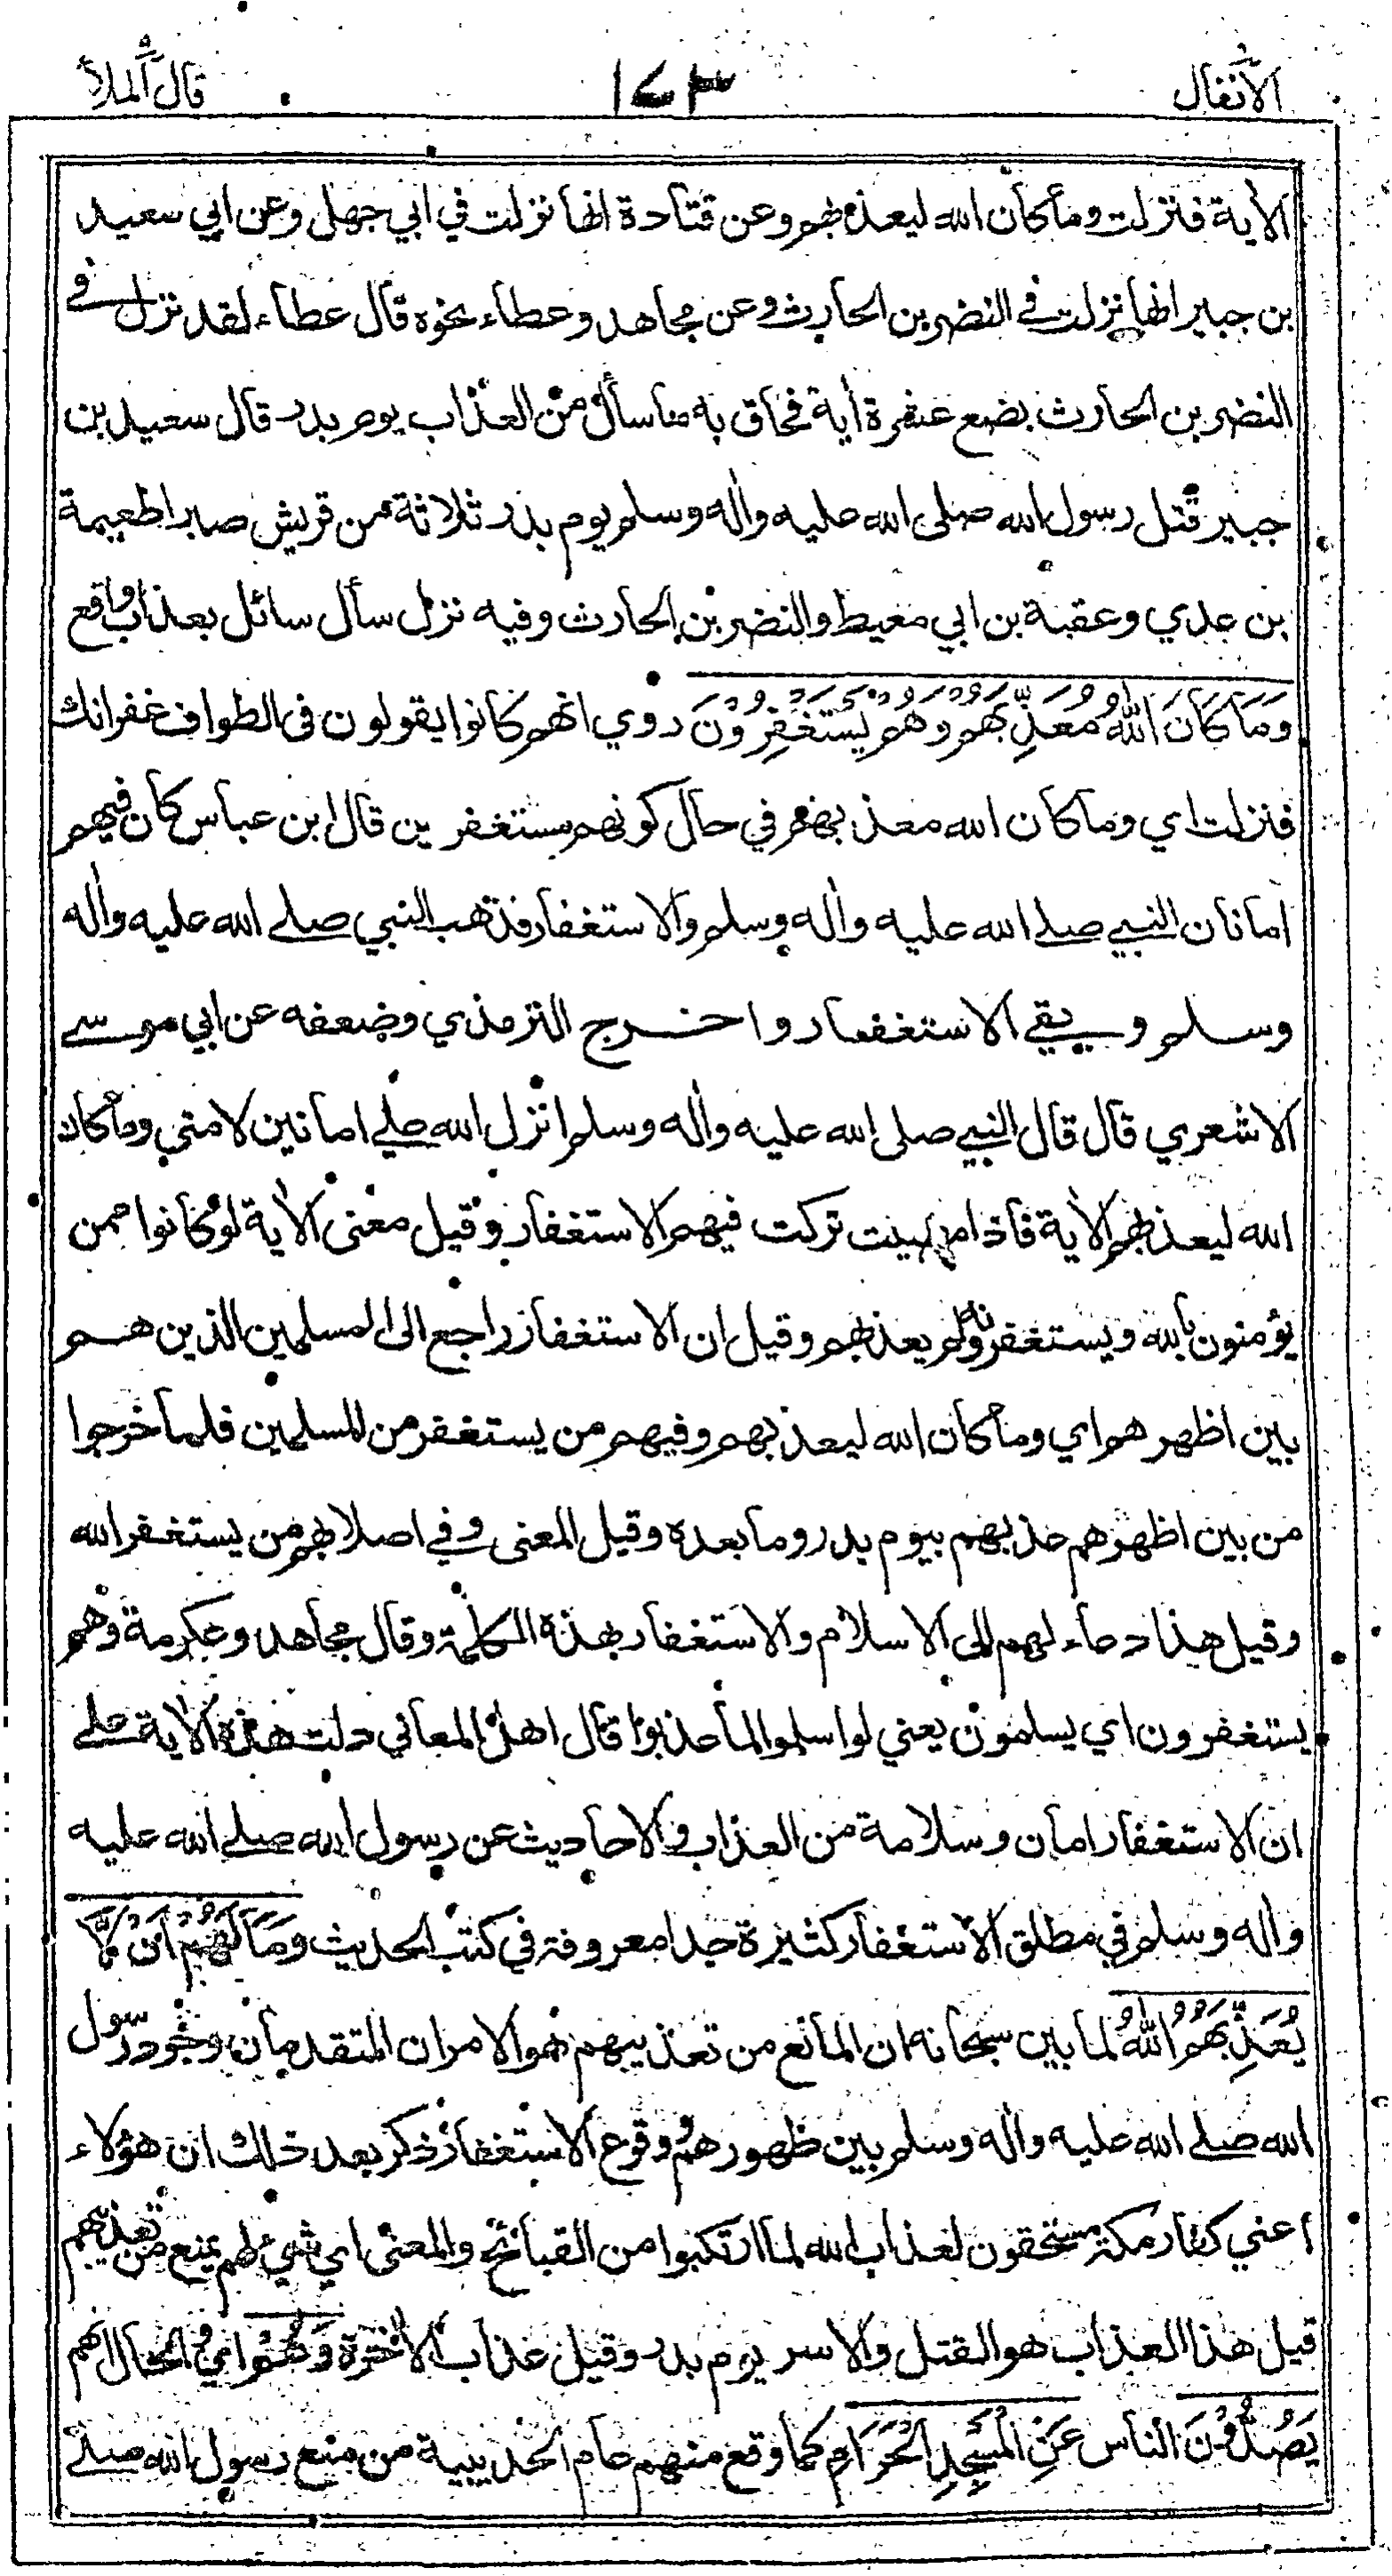 الأنفال ١٤٣ قال الملأ
الأية فنزلت وما كان الله ليعذبهم وعن قتادة انها نزلت في ابي جهل وعن ابي سعيد
بن جبير انها نزلت في النضر بن الحارث وعن مجاهد وعطاء نحوه قال عطاء لقد نزل في
النضر بن الحارث بضع عشرة أية فحاق به ما سأل من العذاب يوم بدر قال سعيد بن
جبير قتل رسول الله صلى الله عليه واٰله وسلم يوم بدر ثلاثة من قريش صبرا طعيمة
بن عدي وعقبة بن ابي معيط والنضر بن الحارث وفيه نزل سأل سائل بعذاب واقع
وَمَا كَانَ اللّٰهُ مُعَذِّبَهُمْ وَهُمْ يَسْتَغْفِرُوْنَ روي انهم كانوا يقولون في الطواف غفرانك
فنزلت اي وما كان الله معذبهم في حال كونهم يستغفرين قال ابن عباس كان فيهم
امانان النبي صلى الله عليه واٰله وسلم والاستغفار فذهب النبي صلى الله عليه واٰله
وسلم وبقي الاستغفار واخرج الترمذي وضعفه عن ابي موسى
الاشعري قال قال النبي صلى الله عليه واٰله وسلم انزل الله علي امانين لامتي وما كان
الله ليعذبهم الأية فاذا مضيت تركت فيهم الاستغفار وقيل معنى الأية لو كانوا ممن
يؤمنون بالله ويستغفرونه لم يعذبهم وقيل ان الاستغفار راجع الى المسلمين الذين هم
بين اظهرهم اي وما كان الله ليعذبهم وفيهم من يستغفر من المسلمين فلما خرجوا
من بين اظهرهم عذبهم بيوم بدر وما بعده وقيل المعنى وفي اصلابهم من يستغفر الله
وقيل هذا دعاء لهم الى الاسلام والاستغفار بهذه الكلمة وقال مجاهد وعكرمة وهم
يستغفرون اي يسلمون يعني لو اسلموا لما عذبوا قال اهل المعاني دلت هذه الأية على
ان الاستغفار امان وسلامة من العذاب والاحاديث عن رسول الله صلى الله عليه
واٰله وسلم في مطلق الاستغفار كثيرة جدا معروفة في كتب الحديث وَمَا لَهُمْ اَنْ لَّا
يُعَذِّبَهُمُ اللّٰهُ لما بين سبحانه ان المانع من تعذيبهم هو الامران المتقدمان وجود رسول
الله صلى الله عليه واٰله وسلم بين ظهورهم ووقوع الاستغفار ذكر بعد ذلك ان هؤلاء
أعني كفار مكة مستحقون لعذاب الله لما ارتكبوا من القبائح والمعنى اي شيء لهم يمنع من تعذيبهم
قيل هذا العذاب هو القتل والاسر يوم بدر وقيل عذاب الأخرة وَهُمْ اي والحال انهم
يَصُدُّوْنَ الناس عَنِ الْمَسْجِدِ الْحَرَامِ كما وقع منهم عام الحديبية من منع رسول الله صلى